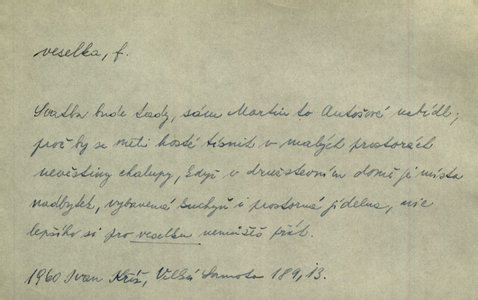 veselka, f.
Svatba bude tady, sám Martin to Antošové nabídl;
proč by se měli hosté tísnit v malých prostorách
nevěstiny chalupy, když v družstevním domě je místa
nadbytek, vybavená kuchyň i prostorná jídelna, nic
lepšího si pro veselku nemůžeš přát.
1960 Ivan Kříž, Velká samota 189, 13.